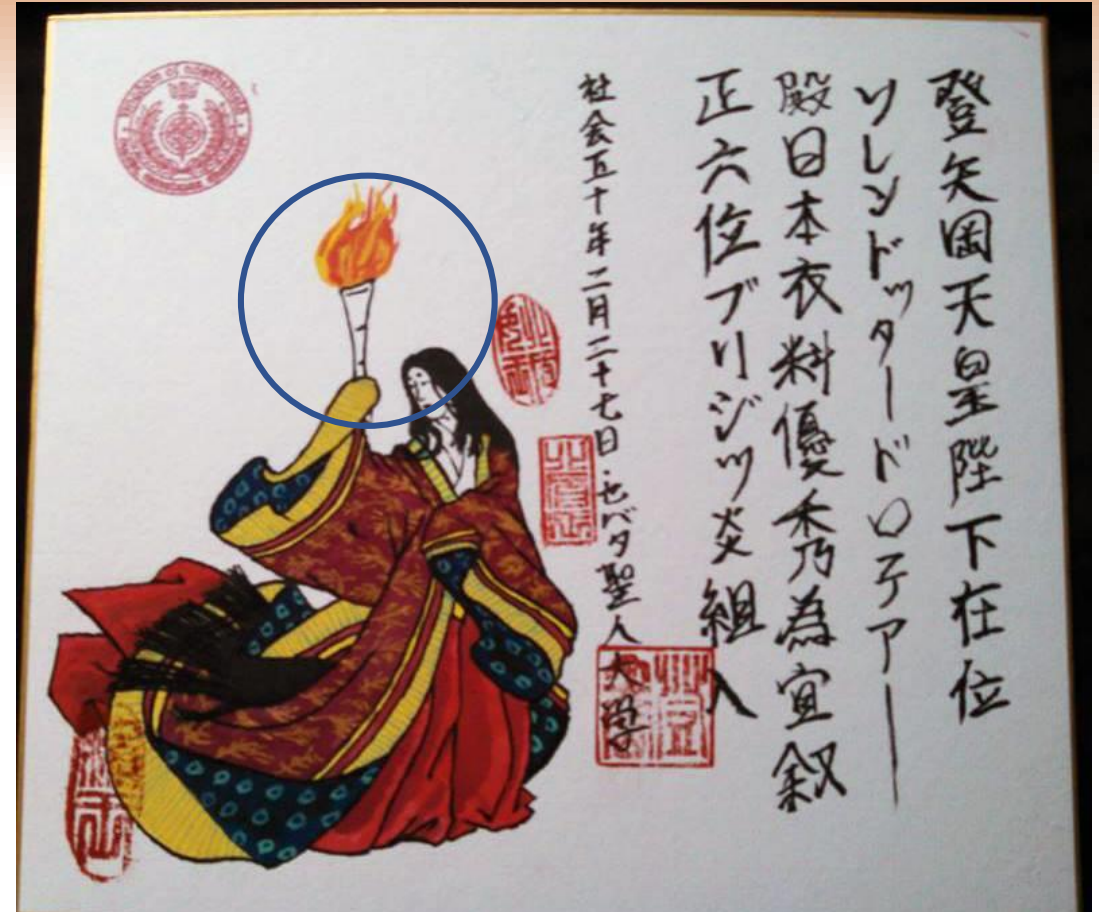 登矢岡天皇陛下在位
ソレンドッタードロテアー
殿日本衣料優秀為宜叙
正六位ブリジツ炎組入
社会五十年二月二十七日・セバタ聖人大学